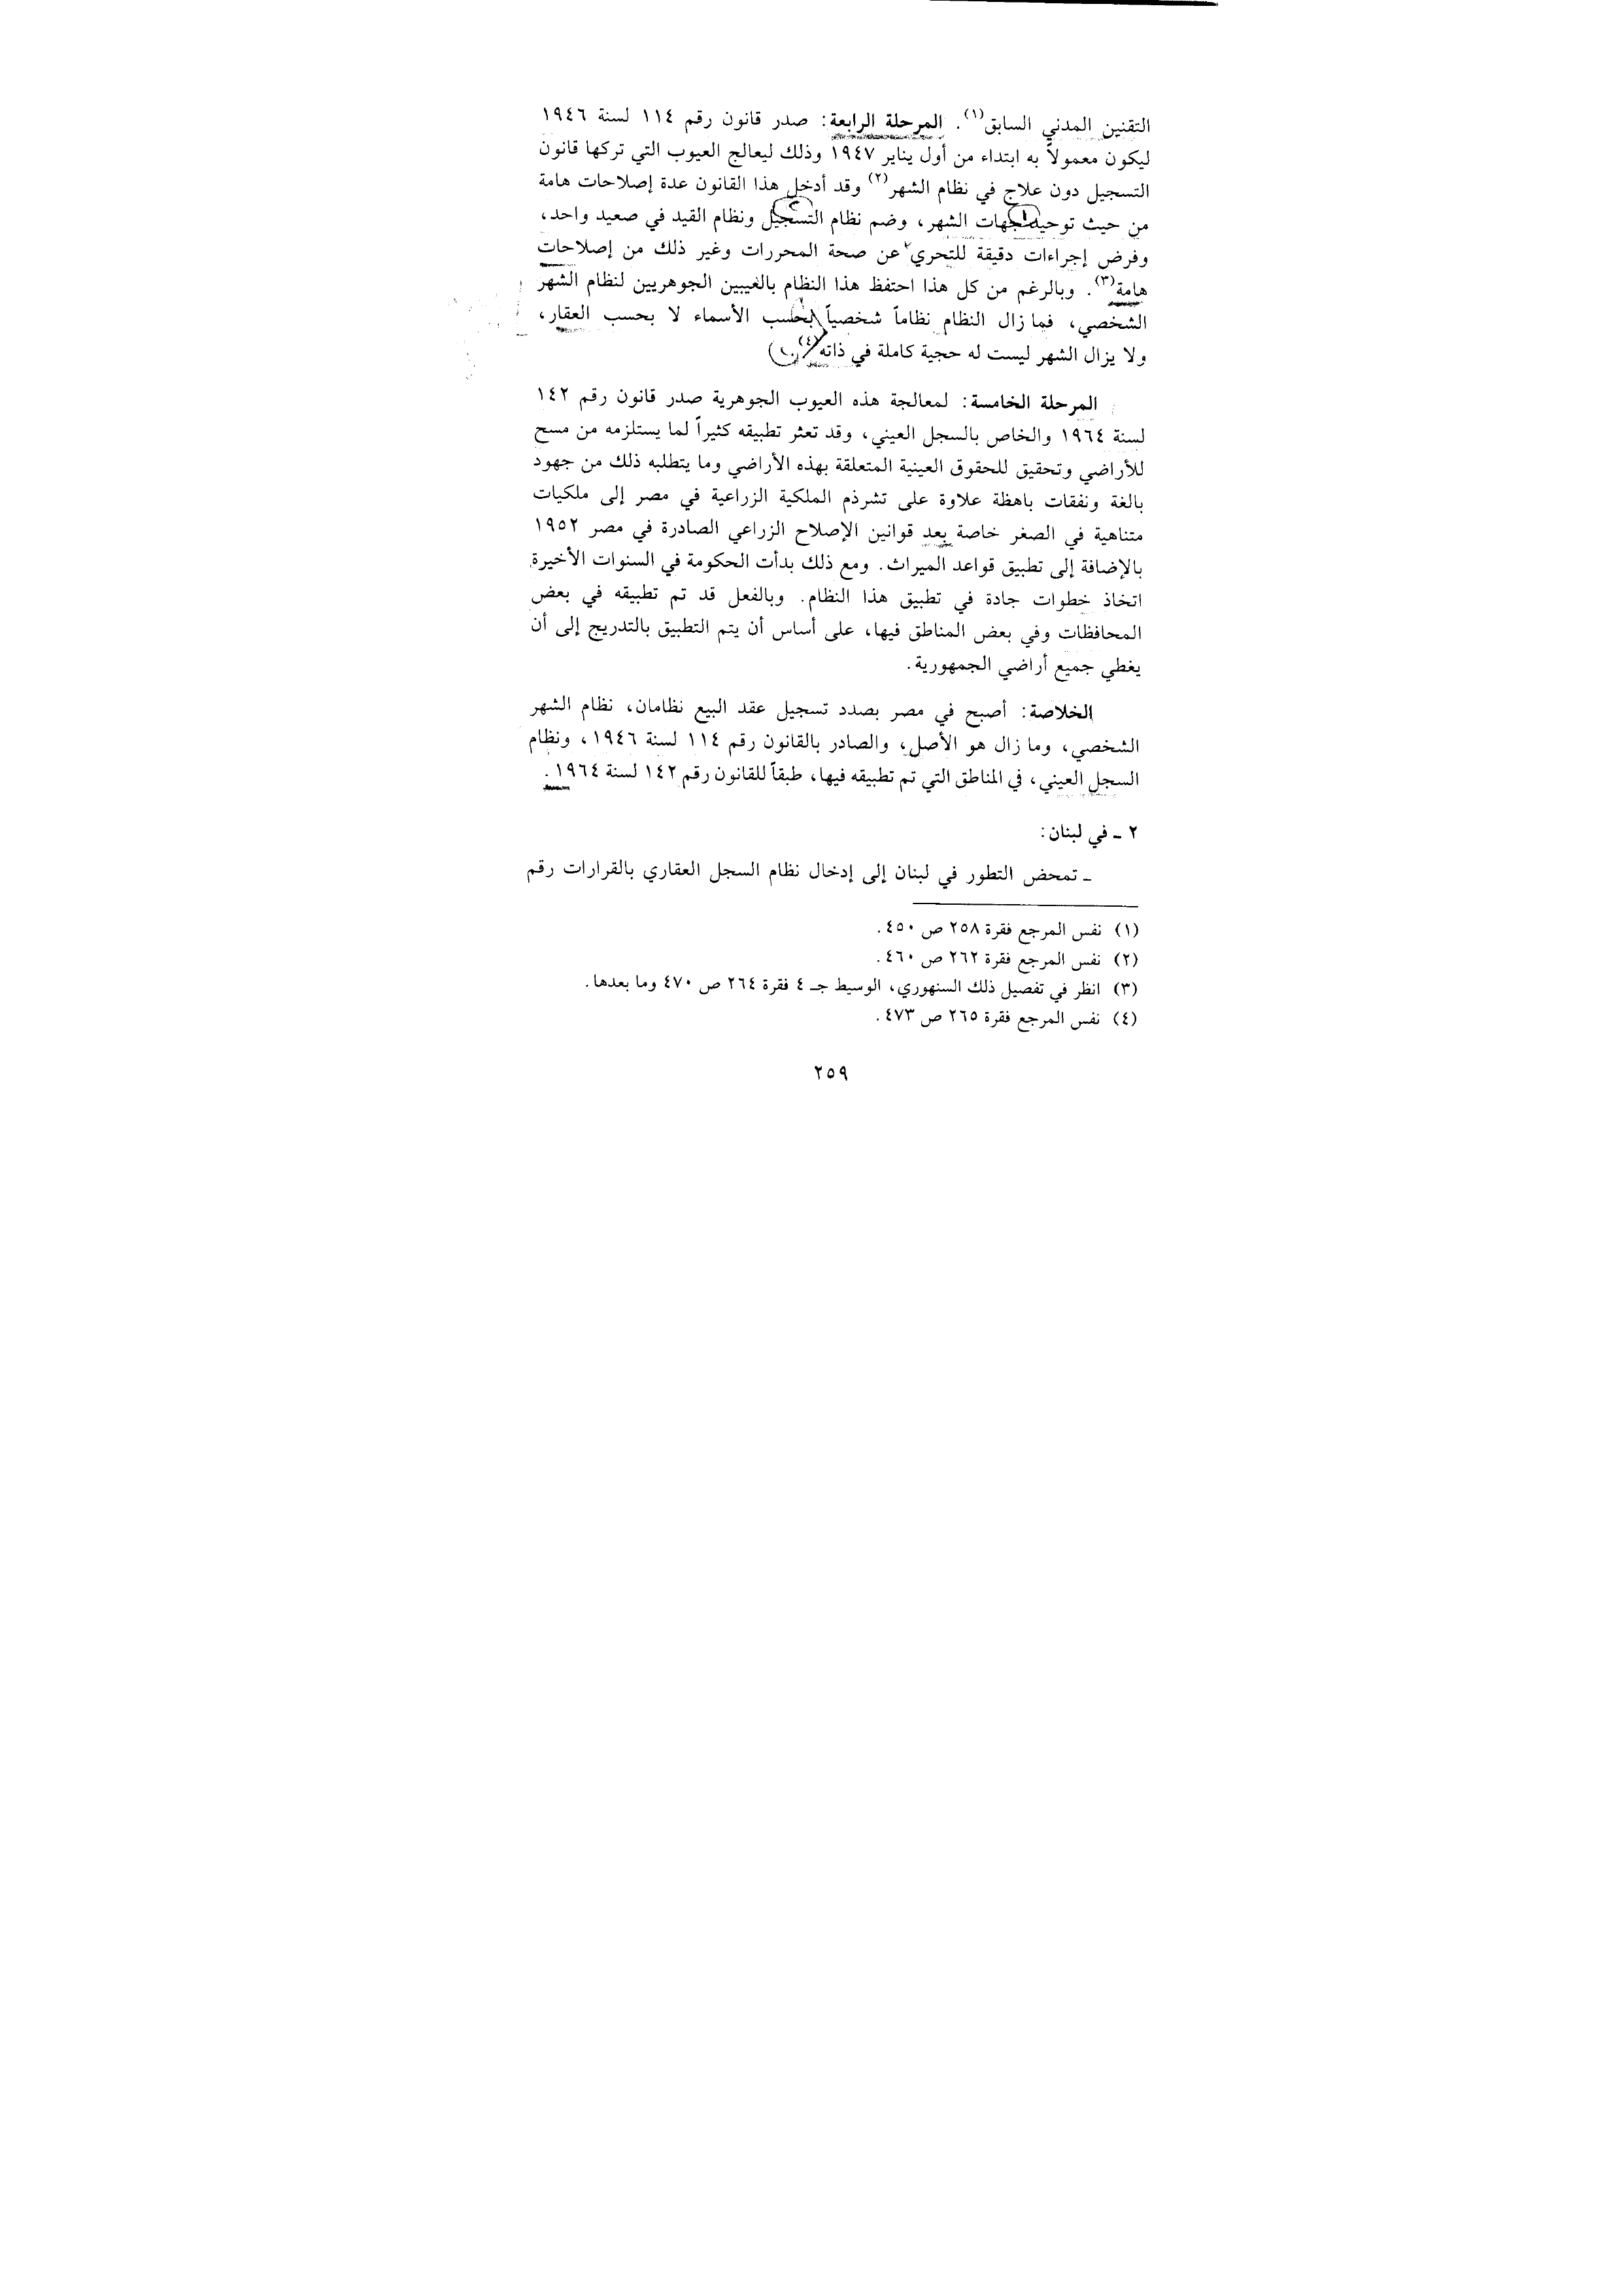 التقنين المدني السابق(١). المرحلة الرابعة: صدر قانون رقم ١١٤ لسنة ١٩٤٦
ليكون معمولاً به ابتداء من أول يناير ١٩٤٧ وذلك ليعالج العيوب التي تركها قانون
التسجيل دون علاج في نظام الشهر(٢) وقد أدخل هذا القانون عدة إصلاحات هامة
من حيث توحيد جهات الشهر، وضم نظام التسجيل ونظام القيد في صعيد واحد،
وفرض إجراءات دقيقة للتحري عن صحة المحررات وغير ذلك من إصلاحات
هامة(٣). وبالرغم من كل هذا احتفظ هذا النظام بالغيبين الجوهريين لنظام الشهر
الشخصي، فما زال النظام نظاماً شخصياً بحسب الأسماء لا بحسب العقار،
ولا يزال الشهر ليست له حجية كاملة في ذاته(٤)
المرحلة الخامسة: لمعالجة هذه العيوب الجوهرية صدر قانون رقم ١٤٢
لسنة ١٩٦٤ والخاص بالسجل العيني، وقد تعثر تطبيقه كثيراً لما يستلزمه من مسح
للأراضي وتحقيق للحقوق العينية المتعلقة بهذه الأراضي وما يتطلبه ذلك من جهود
بالغة ونفقات باهظة علاوة على تشرذم الملكية الزراعية في مصر إلى ملكيات
متناهية في الصغر خاصة بعد قوانين الإصلاح الزراعي الصادرة في مصر ١٩٥٢
بالإضافة إلى تطبيق قواعد الميراث. ومع ذلك بدأت الحكومة في السنوات الأخيرة
اتخاذ خطوات جادة في تطبيق هذا النظام. وبالفعل قد تم تطبيقه في بعض
المحافظات وفي بعض المناطق فيها، على أساس أن يتم التطبيق بالتدريج إلى أن
يغطي جميع أراضي الجمهورية.
الخلاصة: أصبح في مصر بصدد تسجيل عقد البيع نظامان، نظام الشهر
الشخصي، وما زال هو الأصل، والصادر بالقانون رقم ١١٤ لسنة ١٩٤٦، ونظام
السجل العيني، في المناطق التي تم تطبيقه فيها، طبقاً للقانون رقم ١٤٢ لسنة ١٩٦٤.
٢ - في لبنان:
- تمحض التطور في لبنان إلى إدخال نظام السجل العقاري بالقرارات رقم
(١) نفس المرجع فقرة ٢٥٨ ص ٤٥٠.
(٢) نفس المرجع فقرة ٢٦٢ ص ٤٦٠.
(٣) انظر في تفصيل ذلك السنهوري، الوسيط جـ ٤ فقرة ٢٦٤ ص ٤٧٠ وما بعدها.
(٤) نفس المرجع فقرة ٢٦٥ ص ٤٧٣.
٢٥٩